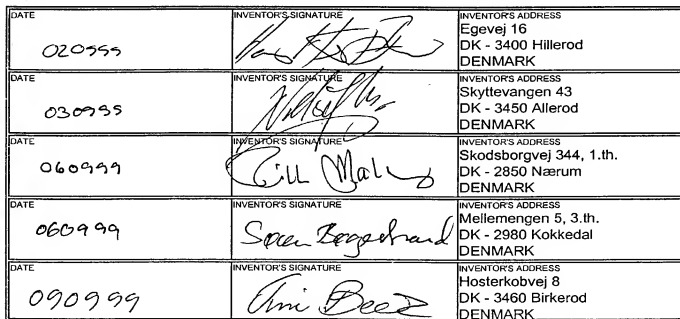 DATE INVENTOR'S SIGNATURE INVENTOR'S ADDRESS
Egevej 16
020999 DK - 3400 Hillerod
DENMARK
DATE INVENTOR'S SIGNATURE INVENTOR'S ADDRESS
Skyttevangen 43
030999 DK - 3450 Allerod
DENMARK
DATE INVENTOR'S SIGNATURE INVENTOR'S ADDRESS
Skodsborgvej 344, 1.th.
060999 DK - 2850 Nærum
DENMARK
DATE INVENTOR'S SIGNATURE INVENTOR'S ADDRESS
Mellemengen 5, 3.th.
060999 DK - 2980 Kokkedal
DENMARK
DATE INVENTOR'S SIGNATURE INVENTOR'S ADDRESS
Hosterkobvej 8
090999 DK - 3460 Birkerod
DENMARK